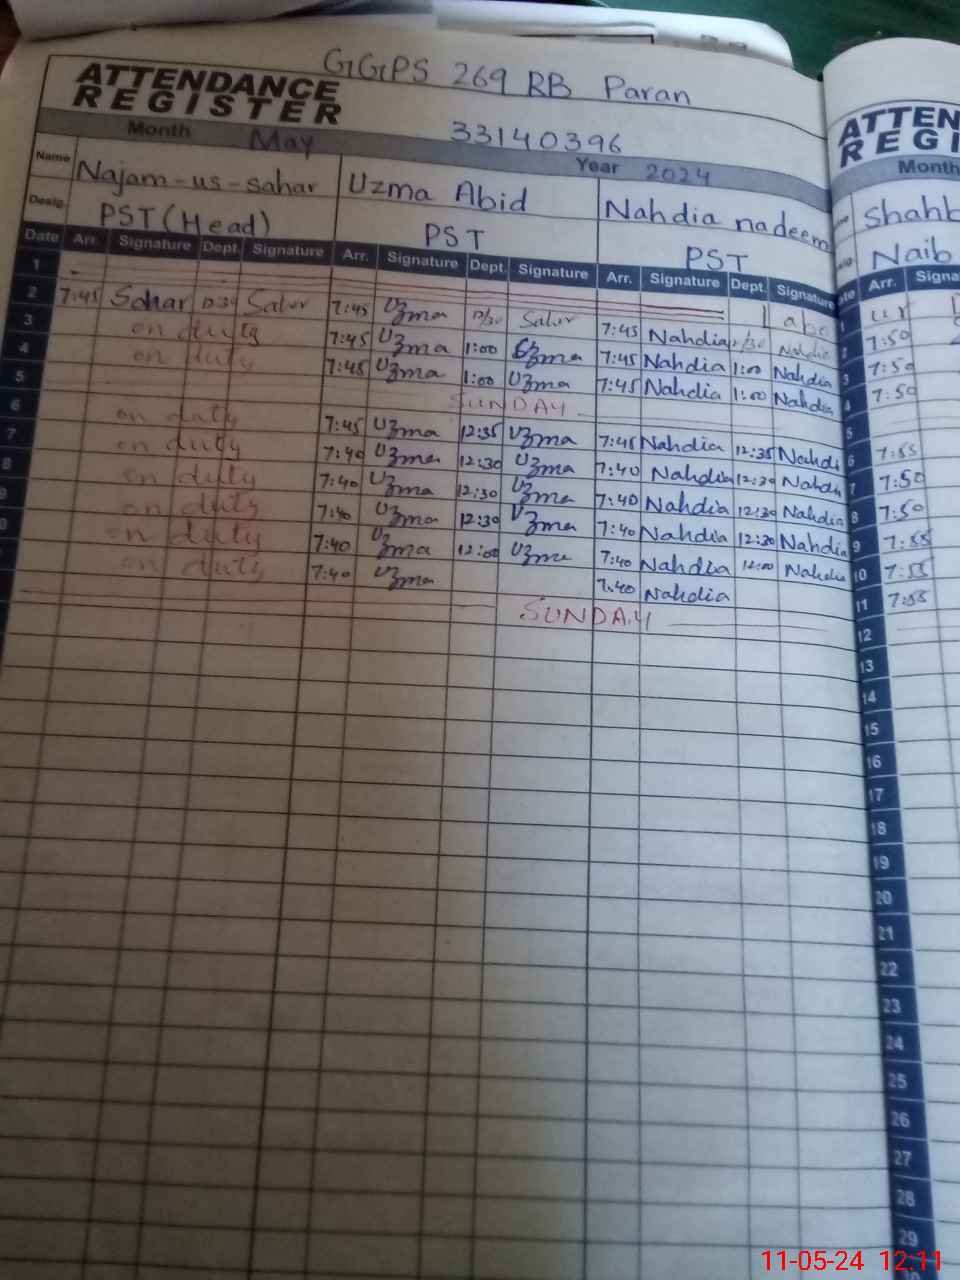 GGPS 269 RB Paran
ATTENDANCE
REGISTER
33140396
Month May Year 2024
Name Najam-us-sahar Uzma Abid Nahdia nadeem
Desig. PST (Head) PST PST
Date Arr. Signature Dept. Signature Arr. Signature Dept. Signature Arr. Signature Dept. Signature
1
2 7:45 Sahar 7:45 Uzma 7:45 Nahdia Nahdia
3 on duty 7:45 Uzma 1:00 Uzma 7:45 Nahdia 1:00 Nahdia
4 on duty 7:45 Uzma 1:00 Uzma 7:45 Nahdia 1:00 Nahdia
5 SUNDAY
6 on duty 7:45 Uzma 12:35 Uzma 7:45 Nahdia 12:35 Nahdi
7 on duty 7:40 Uzma 12:30 Uzma 7:40 Nahdia 12:30 Nahdi
8 on duty 7:40 Uzma 12:30 Uzma 7:40 Nahdia 12:30 Nahdia
9 on duty 7:40 Uzma 12:30 Uzma 7:40 Nahdia 12:30 Nahdia
0 on duty 7:40 Uzma 12:00 Uzma 7:40 Nahdia 12:00 Nahdia
on duty 7:40 Uzma 7:40 Nahdia
SUNDAY
ATTEN
REGI
Month
Shahb
Naib
Arr. Signa
7:50
3 7:50
4 7:50
5
6 7:55
7 7:50
8 7:50
9 7:55
10 7:55
11 7:55
12
13
14
15
16
17
18
19
20
21
22
23
24
25
26
27
28
29
11-05-24 12:11